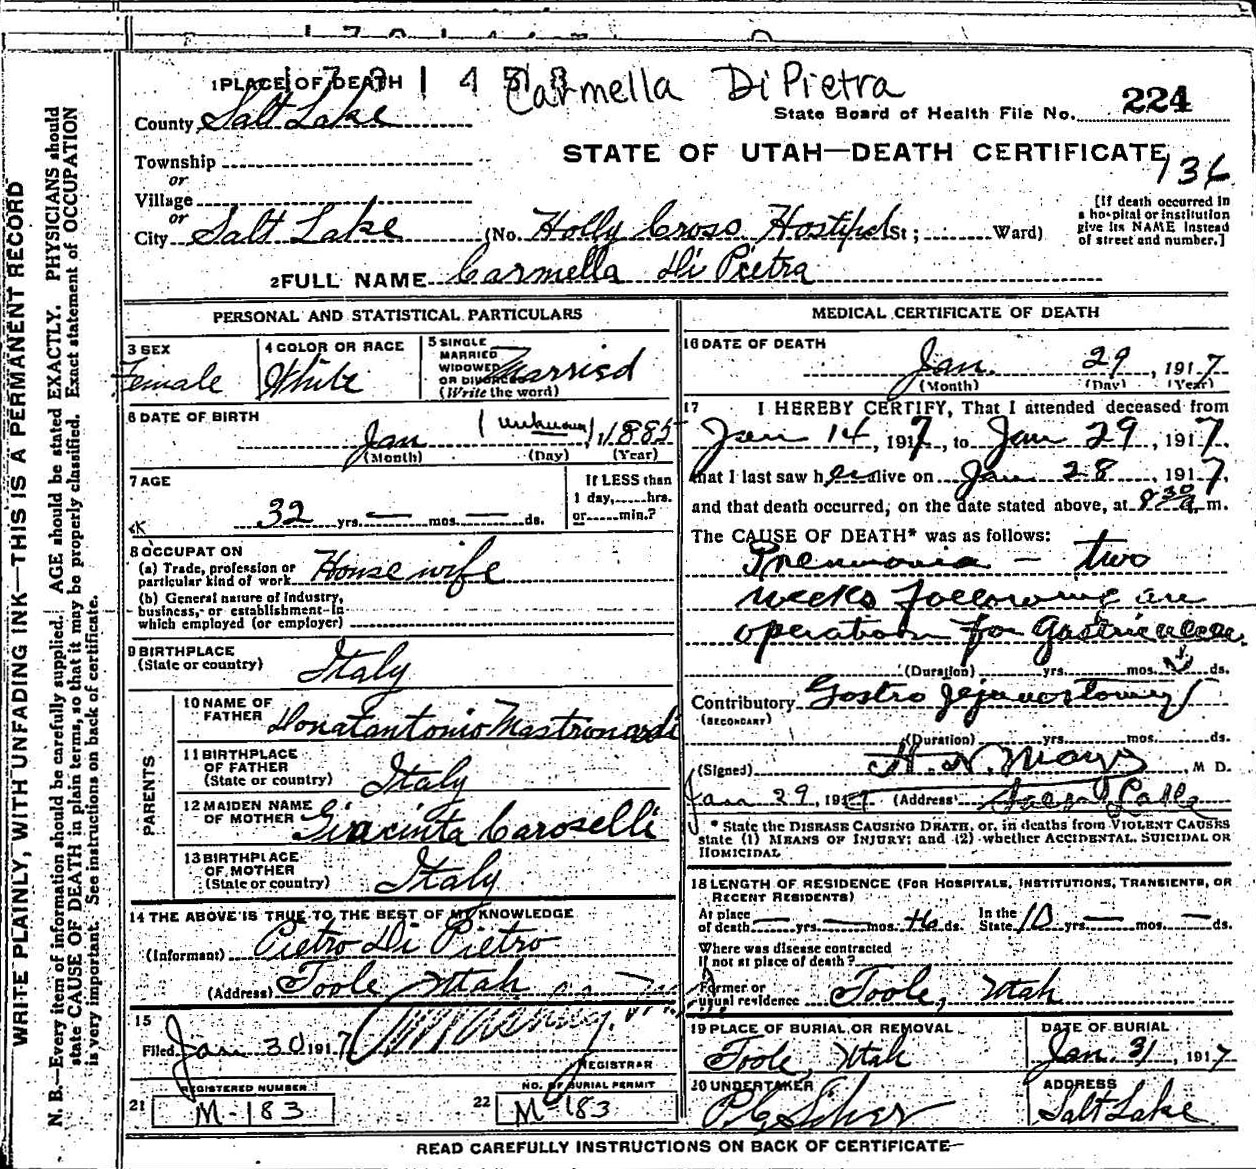 Carmella Di Pietra
1 PLACE OF DEATH
State Board of Health File No. 224
County Salt Lake
STATE OF UTAH—DEATH CERTIFICATE
136
Township
or
Village
or
City Salt Lake (No. Holly Cross Hostipel St; Ward)
[If death occurred in
a hospital or institution
give its NAME instead
of street and number.]
2 FULL NAME Carmella Di Pietra
PERSONAL AND STATISTICAL PARTICULARS
3 SEX
Female
4 COLOR OR RACE
White
5 SINGLE
MARRIED
WIDOWED
OR DIVORCED
(Write the word)
Married
6 DATE OF BIRTH
Jan (unknown), 1885
(Month) (Day) (Year)
7 AGE
32 yrs. — mos. — ds.
If LESS than
1 day, hrs.
or min.?
8 OCCUPATION
(a) Trade, profession or
particular kind of work House wife
(b) General nature of industry,
business, or establishment in
which employed (or employer)
9 BIRTHPLACE
(State or country) Italy
PARENTS
10 NAME OF
FATHER Donatantonio Mastronardi
11 BIRTHPLACE
OF FATHER
(State or country) Italy
12 MAIDEN NAME
OF MOTHER Giacinta Caroselli
13 BIRTHPLACE
OF MOTHER
(State or country) Italy
14 THE ABOVE IS TRUE TO THE BEST OF MY KNOWLEDGE
(Informant) Pietro Di Pietro
(Address) Toole Utah
15
Filed Jan 30 1917
REGISTRAR
REGISTERED NUMBER
21 M-183
NO. OF BURIAL PERMIT
22 M-183
MEDICAL CERTIFICATE OF DEATH
16 DATE OF DEATH
Jan. 29, 1917
(Month) (Day) (Year)
17 I HEREBY CERTIFY, That I attended deceased from
Jan 14, 1917, to Jan 29, 1917,
that I last saw her alive on Jan 28, 1917,
and that death occurred, on the date stated above, at 8 30 a m.
The CAUSE OF DEATH* was as follows:
Pneumonia — two
weeks following an
operation for Gastric ulcer.
(Duration) yrs. mos. ds.
Contributory Gastro jejunostomy
(SECONDARY)
(Duration) yrs. mos. ds.
(Signed) H. N. Mayo, M D.
Jan 29, 1917 (Address) Salt Lake
* State the DISEASE CAUSING DEATH, or, in deaths from VIOLENT CAUSES
state (1) MEANS OF INJURY; and (2) whether ACCIDENTAL, SUICIDAL OR
HOMICIDAL
18 LENGTH OF RESIDENCE (FOR HOSPITALS, INSTITUTIONS, TRANSIENTS, OR
RECENT RESIDENTS)
At place
of death — yrs. — mos. ds.
In the
State 10 yrs. — mos. — ds.
Where was disease contracted
if not at place of death?
Former or
usual residence Toole, Utah
19 PLACE OF BURIAL OR REMOVAL
Toole, Utah
DATE OF BURIAL
Jan. 31, 1917
20 UNDERTAKER
ADDRESS
Salt Lake
READ CAREFULLY INSTRUCTIONS ON BACK OF CERTIFICATE
WRITE PLAINLY, WITH UNFADING INK—THIS IS A PERMANENT RECORD
N. B.—Every item of information should be carefully supplied. AGE should be stated EXACTLY. PHYSICIANS should
state CAUSE OF DEATH in plain terms, so that it may be properly classified. Exact statement of OCCUPATION
is very important. See instructions on back of certificate.